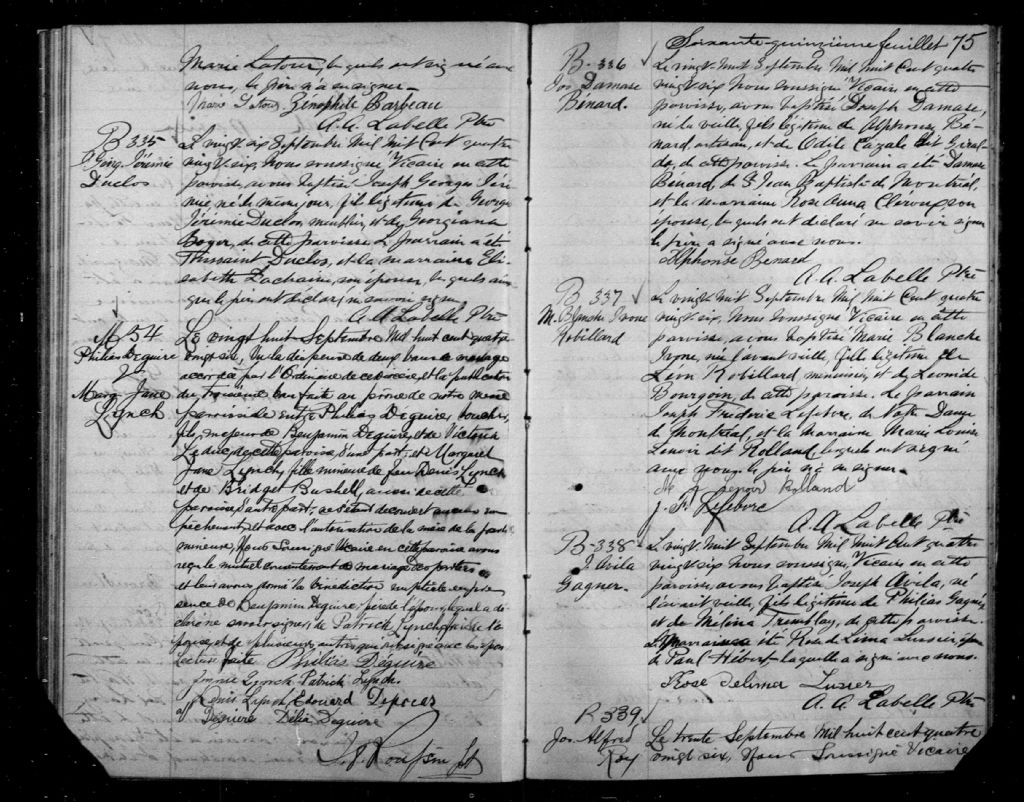 Marie Latour, lesquels ont signé avec
nous, le père n'a su signer.
Zénophile Barbeau
A. A. Labelle Ptre
B 335
J. Georg. Jérémie
Duclos
Le vingt six Septembre Mil huit Cent quatre
vingt six, Nous soussigné Vicaire en cette
paroisse, avons baptisé Joseph Georges Jéré-
mie né le même jour, fils légitime de George
Jérémie Duclos, et de Georgiana
Boyer, de cette paroisse. Le parrain a été
Toussaint Duclos, et la marraine Eli-
sabeth Lachaine, son épouse, lesquels ain-
si que le père ont déclaré ne savoir signer.
A. A. Labelle Ptre
M 54
Philias Deguire
&
Marg. Jane
Lynch
Le vingt huit Septembre Mil huit cent quatre
vingt six, Vu la dispense de deux bans de mariage
accordée par l'Ordinaire de ce diocèse, et la publication
du troisième ban faite au prône de notre messe
paroissiale entre Philias Deguire, boucher,
fils, majeur de Benjamin Deguire, et de Victoria
Leduc de cette paroisse, d'une part; et Margaret
Jane Lynch, fille mineure de feu Denis Lynch
et de Bridget Bushell, aussi de cette
paroisse, d'autre part; ne s'étant découvert aucun em-
pêchement, et avec l'autorisation de la mère de la partie
mineure, Nous Soussigné Vicaire en cette paroisse avons
reçu le mutuel consentement de mariage des parties
et leur avons donné la bénédiction nuptiale en pré-
sence de Benjamin Deguire, père de l'époux, lequel a dé-
claré ne savoir signer, de Patrick Lynch frère de l'é-
pouse, et de plusieurs autres qui ont signé avec les époux
lecture faite Philias Deguire
Jennie Lynch Patrick Lynch.
Denis Lynch Edouard
V Deguire Délia Deguire
Soixante-quinzième feuillet 75
B-336
Jos Damase
Bénard.
Le vingt huit Septembre Mil huit Cent quatre
vingt six Nous soussigné Vicaire en cette
paroisse, avons baptisé Joseph Damase,
né la veille, fils légitime de Alphonse Bé-
nard, artisan, et de Odile Cazale dit Giral-
do, de cette paroisse. Le parrain a été Damase
Bénard, de St Jean Baptiste de Montréal,
et la marraine Rose Anna Cléroux son
épouse, lesquels ont déclaré ne savoir signer
le père a signé avec nous.
Alphonse Benard
A. A. Labelle Ptre
B 337
M. Blanche Ivone
Robillard
Le vingt huit Septembre Mil huit Cent quatre
vingt six, Nous soussigné Vicaire en cette
paroisse, avons baptisé Marie Blanche
Ivone, née l'avant veille, fille légitime de
Léon Robillard menuisier, et de Léonide
Bourgoin de cette paroisse. Le parrain
Joseph Frédéric Lefebvre, de Notre Dame
de Montréal, et la marraine Marie Louise
Lenoir dit Rolland, lesquels ont signé
avec nous, le père n'a su signer.
M L Lenoir Rolland
J. F. Lefebvre
A. A Labelle Ptre
B-338
J. Avila
Gagner.
Le vingt huit Septembre Mil huit Cent quatre
vingt six nous soussigné, Vicaire en cette
paroisse, avons baptisé Joseph Avila, né
l'avant veille, fils légitime de Philias Gagner
et de Mélina Tremblay, de cette paroisse.
La marraine a été Rose de Lima Lussier, épouse
de Paul Hébert laquelle a signé avec nous.
Rose Delima Lussier
A. A Labelle Ptre
B 339
Jos. Alfred
Roy
Le trente Septembre Mil huit cent quatre
vingt six, Nous Soussigné Vicaire